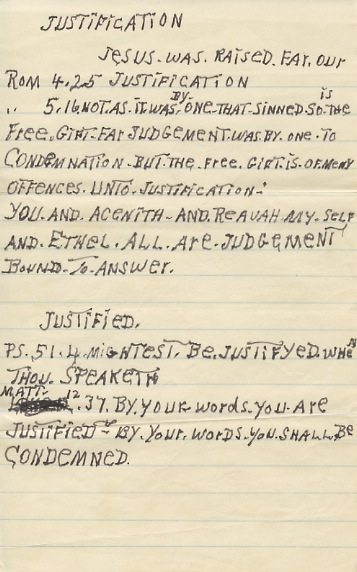 JUSTIFICATION
JESUS. WAS. RAISED. FAR. OUR
ROM 4.25 JUSTIFICATION
,, 5.16. NOT. AS. IT. WAS. BY. ONE. THAT. SINNED. SO. IS THE
FREE. GIFT. FAR JUDGEMENT. WAS. BY. ONE. TO
CONDEMNATION. BUT. THE. FREE. GIFT. IS. OF. MENY
OFFENCES. UNTO. JUSTIFICATION.
YOU. AND. ACENITH. AND. REAVAH. MY. SELF
AND. ETHEL. ALL. ARE. JUDGEMENT
BOUND. TO. ANSWER.
JUSTIFIED.
PS. 51. 4. MIGHTEST. BE. JUSTIFYED. WHEN
THOU. SPEAKETH
MATT. 12. 37. BY. YOUR. WORDS. YOU. ARE
JUSTIFIED BY. YOUR. WORDS. YOU. SHALL. BE
CONDEMNED.